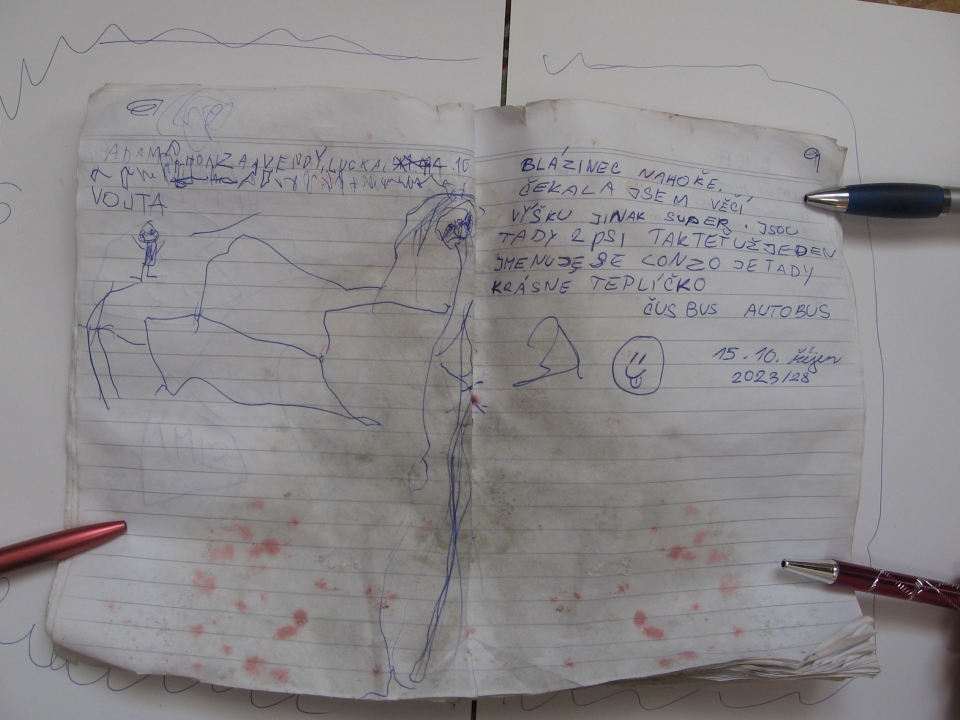 ADAM HONZA A VENDY, LUCKA, 10
VOJTA
9
BLÁZINEC NAHOŘE.
ČEKALA JSEM VĚČÍ
VÝŠKU JINAK SUPER. JSOU
TADY 2 PSI TAKTETUŽ JEDEN
JMENUJE SE LONZO JE TADY
KRÁSNÉ TEPLÍČKO
ČUS BUS AUTOBUS
15.10. říjen
2023/28